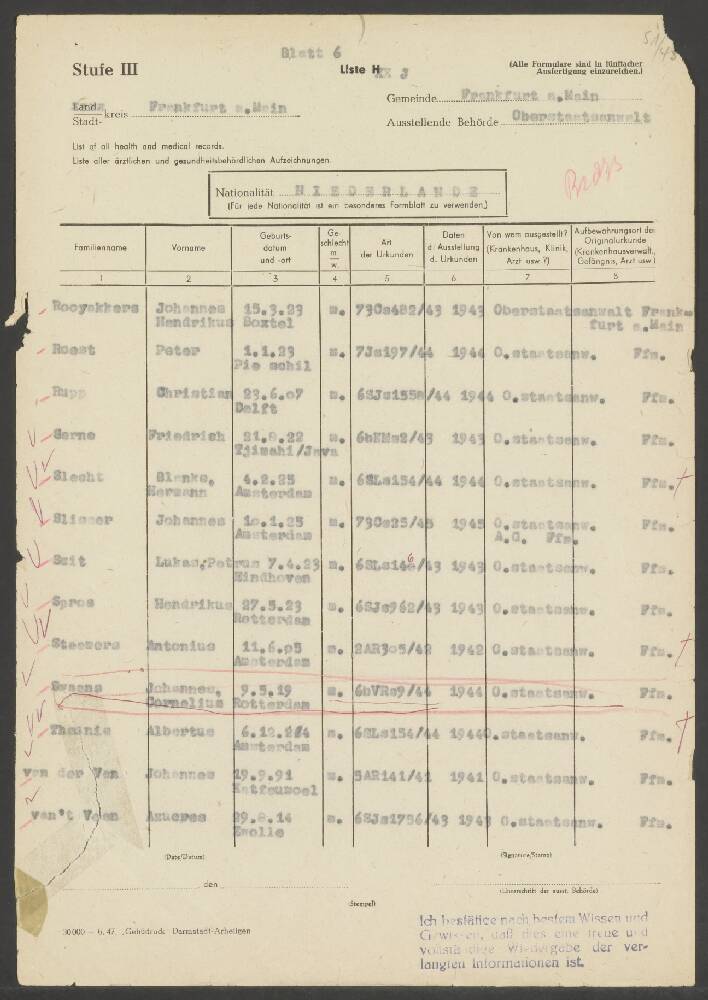 Blatt 6
Stufe III
Liste H
(Alle Formulare sind in fünffacher
Ausfertigung einzureichen.)
Gemeinde Frankfurt a.Main
Land-
Stadt- kreis Frankfurt a.Main
Ausstellende Behörde Oberstaatsanwalt
List of all health and medical records.
Liste aller ärztlichen und gesundheitsbehördlichen Aufzeichnungen.
Nationalität NIEDERLANDE
(Für jede Nationalität ist ein besonderes Formblatt zu verwenden.)
Familienname Vorname Geburts-datum und -ort Ge-schlecht m w. Art der Urkunden Daten d. Ausstellung d. Urkunden Von wem ausgestellt? (Krankenhaus, Klinik, Arzt usw.?) Aufbewahrungsort der Originalurkunde (Krankenhausverwalt., Gefängnis, Arzt usw.)
1 2 3 4 5 6 7 8
Rooyakkers Johannes 15.3.23 m. 730s482/43 1943 Oberstaatsanwalt Frank-
Hendrikus Boxtel furt a.Main
Roest Peter 1.1.23 m. 7Js197/44 1944 O.staatsanw. Ffm.
Rupp Christian 23.6.07 m. 6SJs155a/44 1944 O.staatsanw. Ffm.
Delft
Serne Friedrich 21.8.22 m. 6bKMs2/43 1943 O.staatsanw. Ffm.
Tjimahi/Java
Slecht 4.2.25 m. 6SLs154/44 1944 O.staatsanw. Ffm.
Hermann Amsterdam
Johannes 10.1.25 m. 730s25/45 1945 O.staatsanw. Ffm.
Amsterdam A.G. Ffm.
Smit Lukas,Petrus 7.4.23 m. 6SLs146/43 1943 O.staatsanw. Ffm.
Eindhoven
Spros Hendrikus 27.5.23 m. 6SJs962/43 1943 O.staatsanw. Ffm.
Rotterdam
Steemers Antonius 11.6.05 m. 2AR305/42 1942 O.staatsanw. Ffm.
Amsterdam
Swaens Johannes, 9.5.19 m. 6bVRs9/44 1944 O.staatsanw. Ffm.
Cornelius Rotterdam
Albertus m. 6SLs154/44 1944 O.staatsanw. Ffm.
Amsterdam
van der Ven Johannes 19.9.91 m. 5AR141/41 1941 O.staatsanw. Ffm.
van't Veen 29.8.14 m. 6SJs1756/43 1943 O.staatsanw. Ffm.
Zwolle
(Date/Datum) (Signature/Stamp)
den
(Unterschrift der ausst. Behörde)
(Stempel)
Ich bestätige nach bestem Wissen und
Gewissen, daß dies eine treue und
vollständige Wiedergabe der ver-
langten Informationen ist.